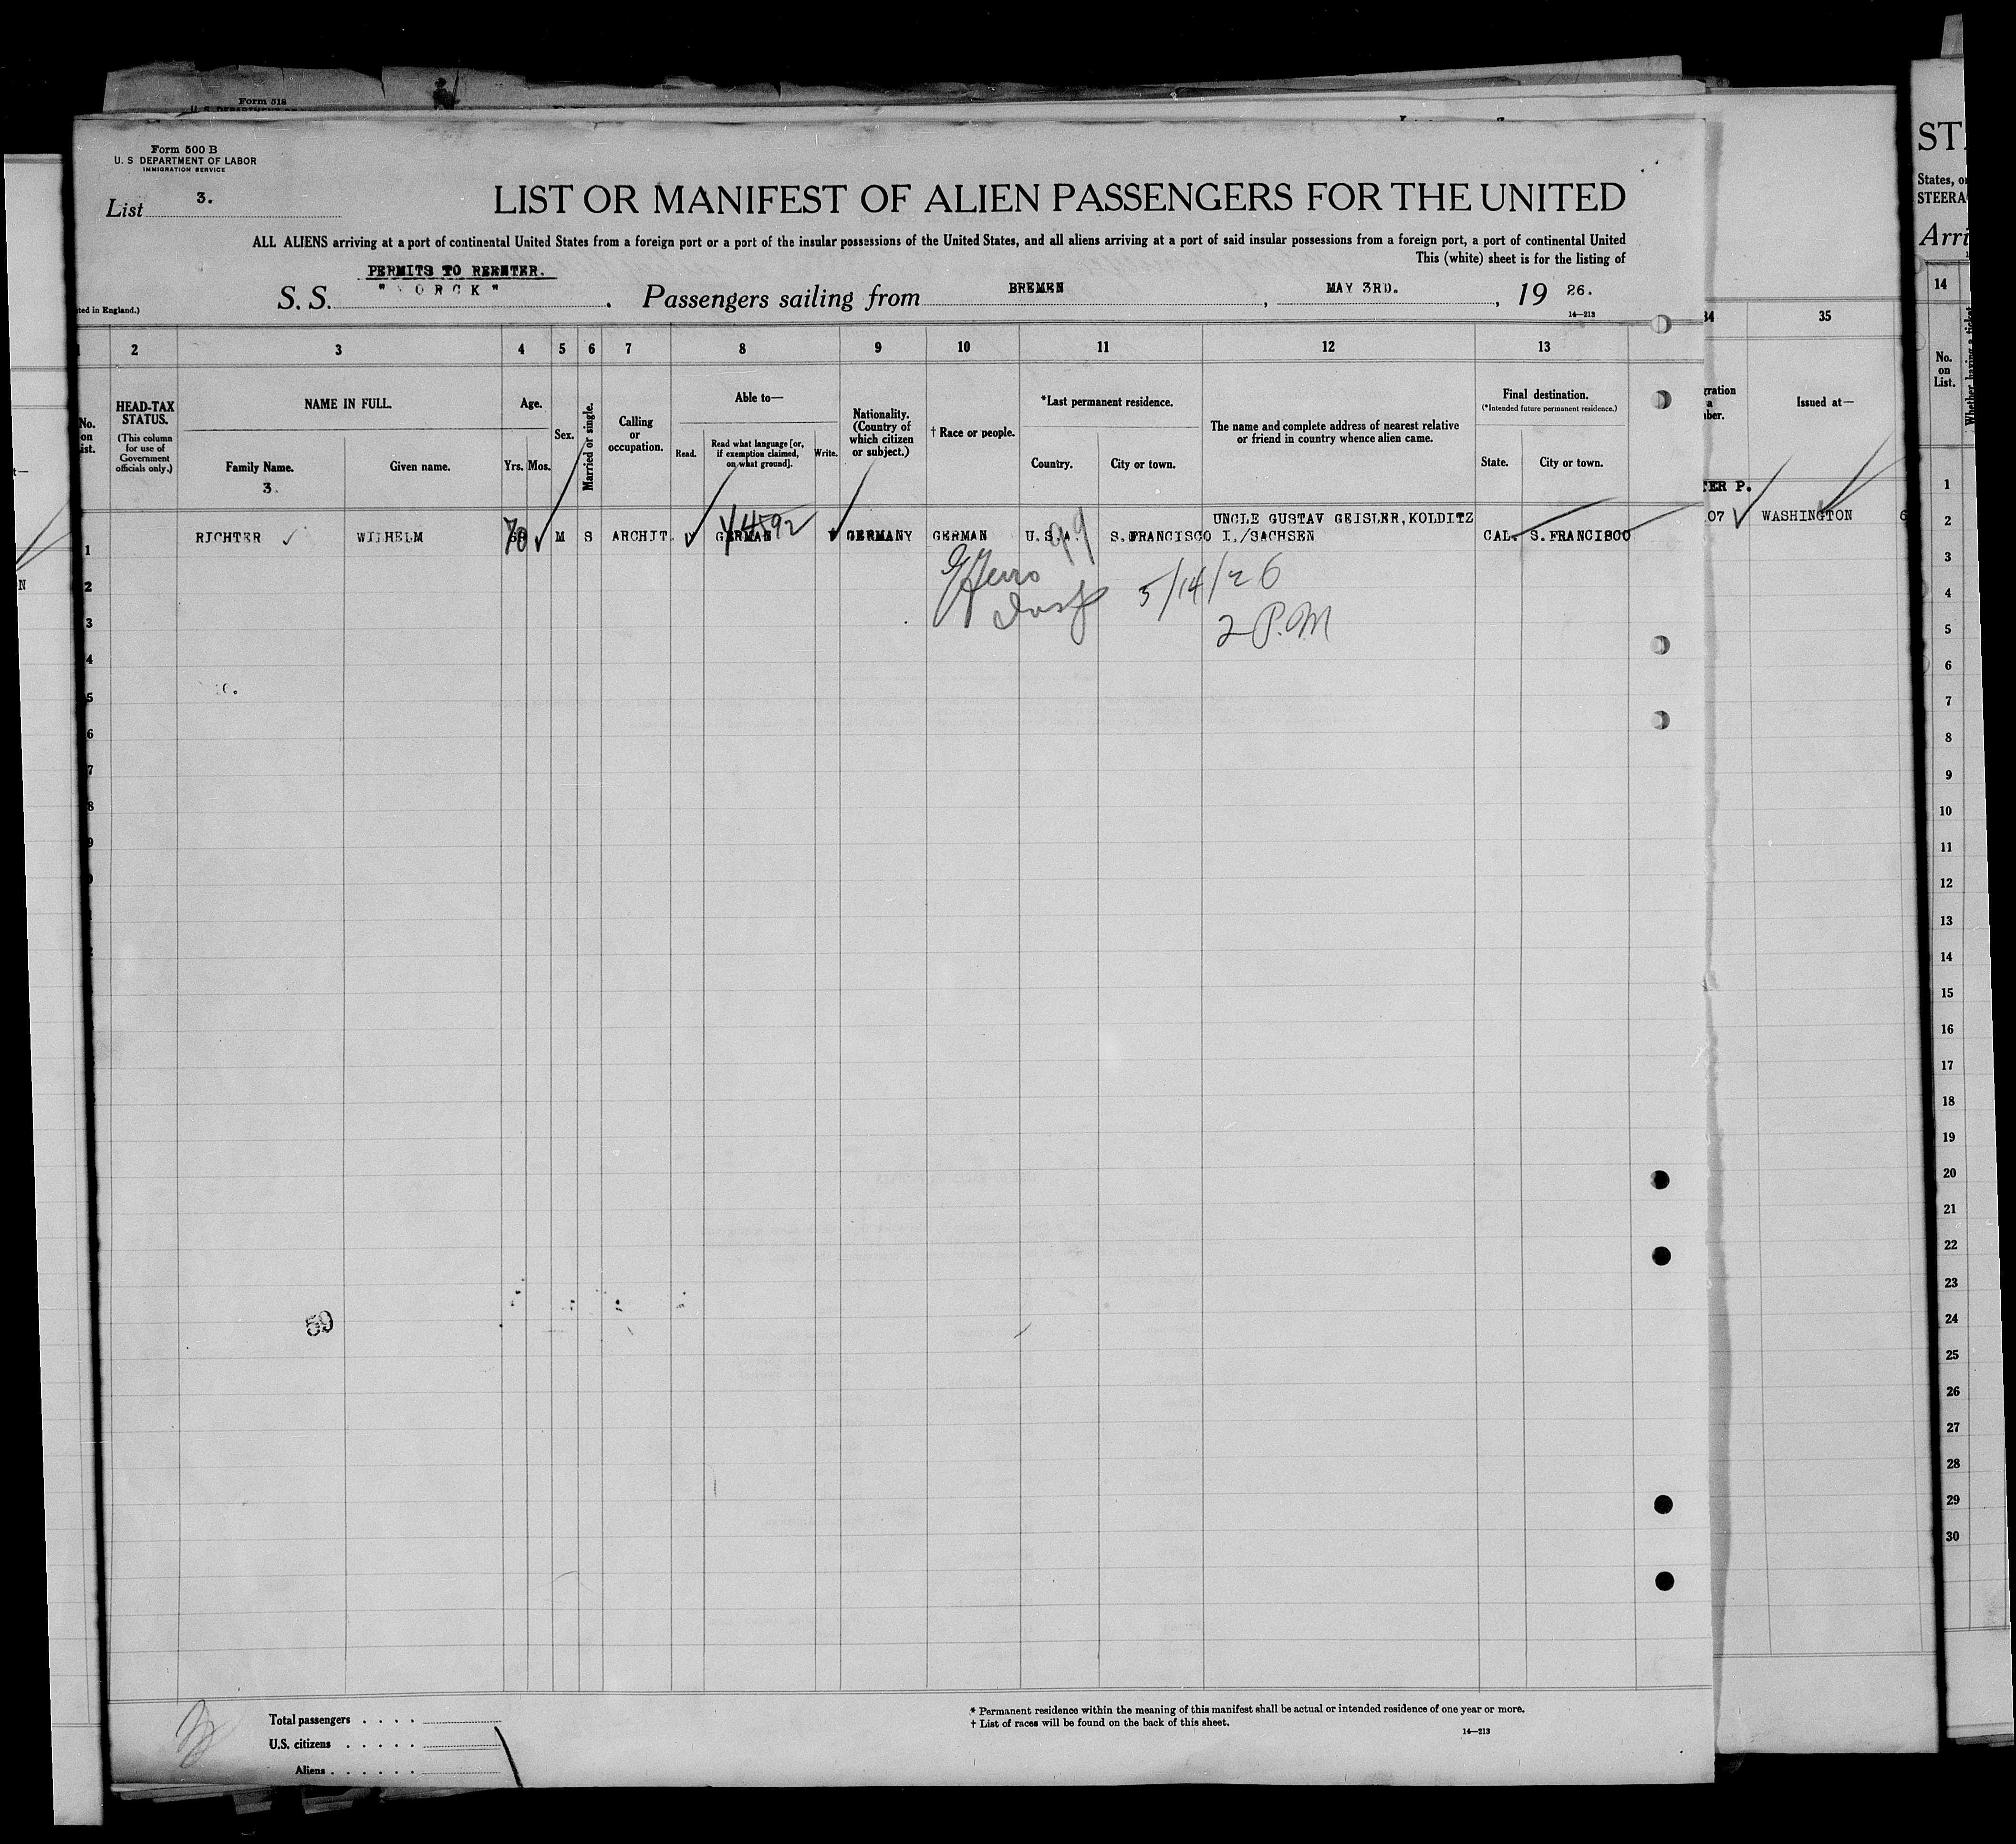 Form 518
Form 500 B
U. S DEPARTMENT OF LABOR
IMMIGRATION SERVICE
List 3.
LIST OR MANIFEST OF ALIEN PASSENGERS FOR THE UNITED
ALL ALIENS arriving at a port of continental United States from a foreign port or a port of the insular possessions of the United States, and all aliens arriving at a port of said insular possessions from a foreign port, a port of continental United
This (white) sheet is for the listing of
PERMITS TO REENTER.
S. S. "YORCK". Passengers sailing from BREMEN, MAY 3RD., 1926.
ted in England.)
14—213
2 3 4 5 6 7 8 9 10 11 12 13
No. on ist.
HEAD-TAX STATUS.
(This column for use of Government officials only.)
NAME IN FULL.
Family Name.
Given name.
3.
Age.
Yrs. Mos.
Sex.
Married or single.
Calling or occupation.
Able to—
Read.
Read what language [or, if exemption claimed, on what ground].
Write.
Nationality. (Country of which citizen or subject.)
† Race or people.
*Last permanent residence.
Country.
City or town.
The name and complete address of nearest relative or friend in country whence alien came.
Final destination.
(*Intended future permanent residence.)
State.
City or town.
UNCLE GUSTAV GEISLER,KOLDITZ
RICHTER WILHELM 70 M S ARCHIT. GERMAN GERMANY GERMAN U.S.A. S.FRANCISCO I./SACHSEN CAL. S.FRANCISCO
Y4592
99
5/14/26
2 P.M
1
2
3
4
5
6
7
8
9
59
Total passengers . . . .
U.S. citizens . . . . .
Aliens . . . . . .
* Permanent residence within the meaning of this manifest shall be actual or intended residence of one year or more.
† List of races will be found on the back of this sheet.
14—213
34 35
gration
a
ber.
Issued at—
TER P.
07 WASHINGTON 6
ST
States, o
STEERA
Arri
14
No. on List.
Whether having a ticket
1
2
3
4
5
6
7
8
9
10
11
12
13
14
15
16
17
18
19
20
21
22
23
24
25
26
27
28
29
30